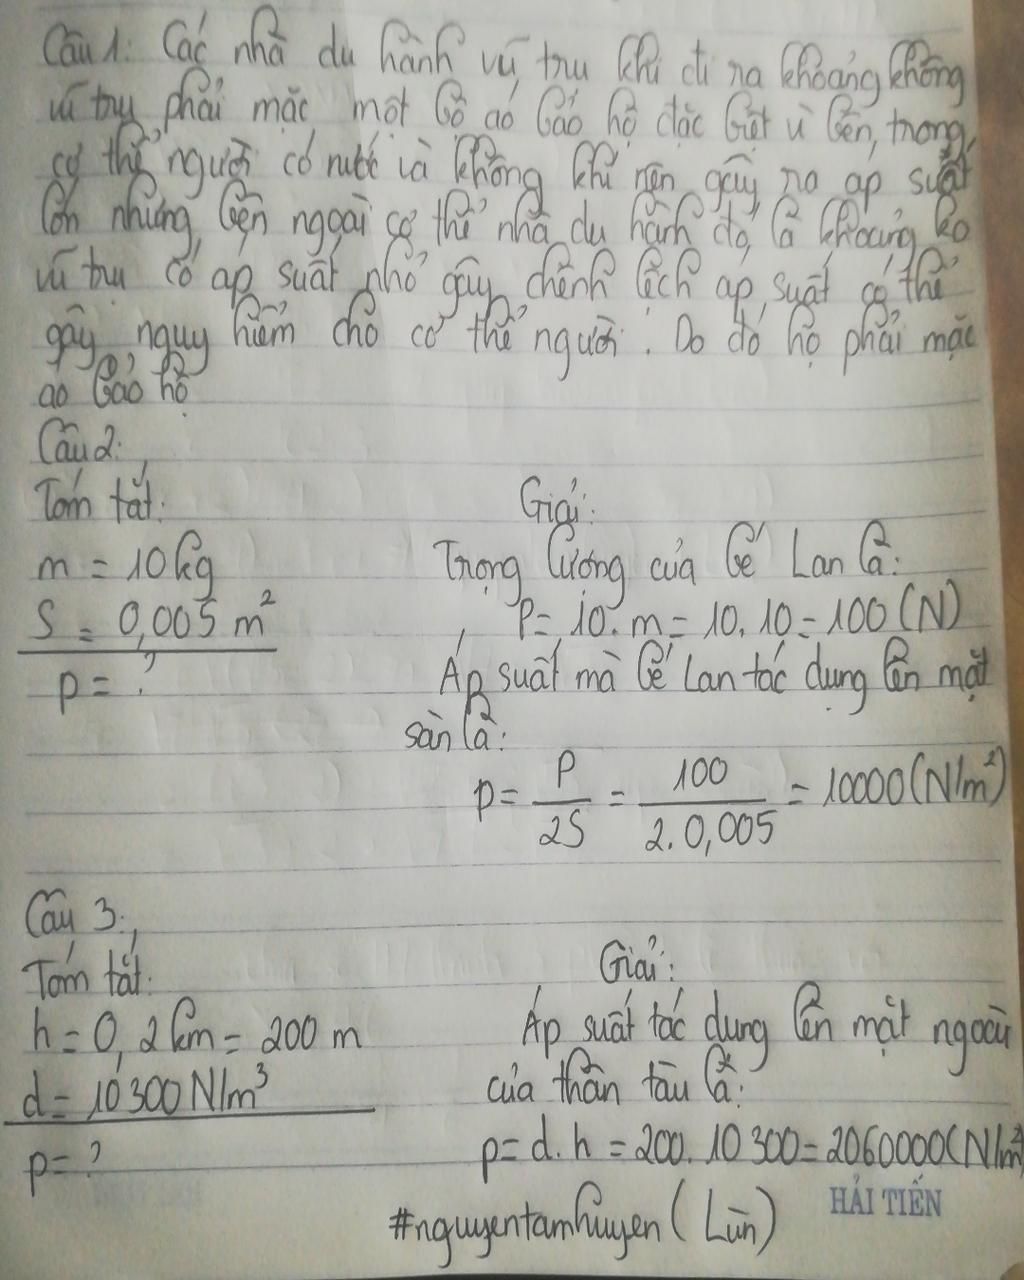 Câu 1: Các nhà du hành vũ trụ khi đi ra khoảng không
vũ trụ phải mặc một bộ áo bảo hộ đặc biệt vì bên, trong
cơ thể người có nước và không khí nên gây ra áp suất
lớn nhưng bên ngoài cơ thể nhà du hành đó là khoảng ko
vũ trụ có áp suất nhỏ gây chênh lệch áp suất có thể
gây nguy hiểm cho cơ thể người. Do đó họ phải mặc
áo bảo hộ
Câu 2:
Tóm tắt:
m = 10kg
S = 0,005 m²
p = ?
Giải:
Trọng lượng của bé Lan là:
P= 10. m = 10. 10 = 100 (N)
Áp suất mà bé Lan tác dụng lên mặt
sàn là:
p = P/2S = 100/2.0,005 = 10000 (N/m²)
Câu 3:
Tóm tắt:
h = 0,2km = 200 m
d = 10300 N/m³
p = ?
Giải:
Áp suất tác dụng lên mặt ngoài
của thân tàu là:
p = d.h = 200. 10 300 = 2060000 (N/m²)
HẢI TIẾN
#nguyentamhuyen ( Lùn)